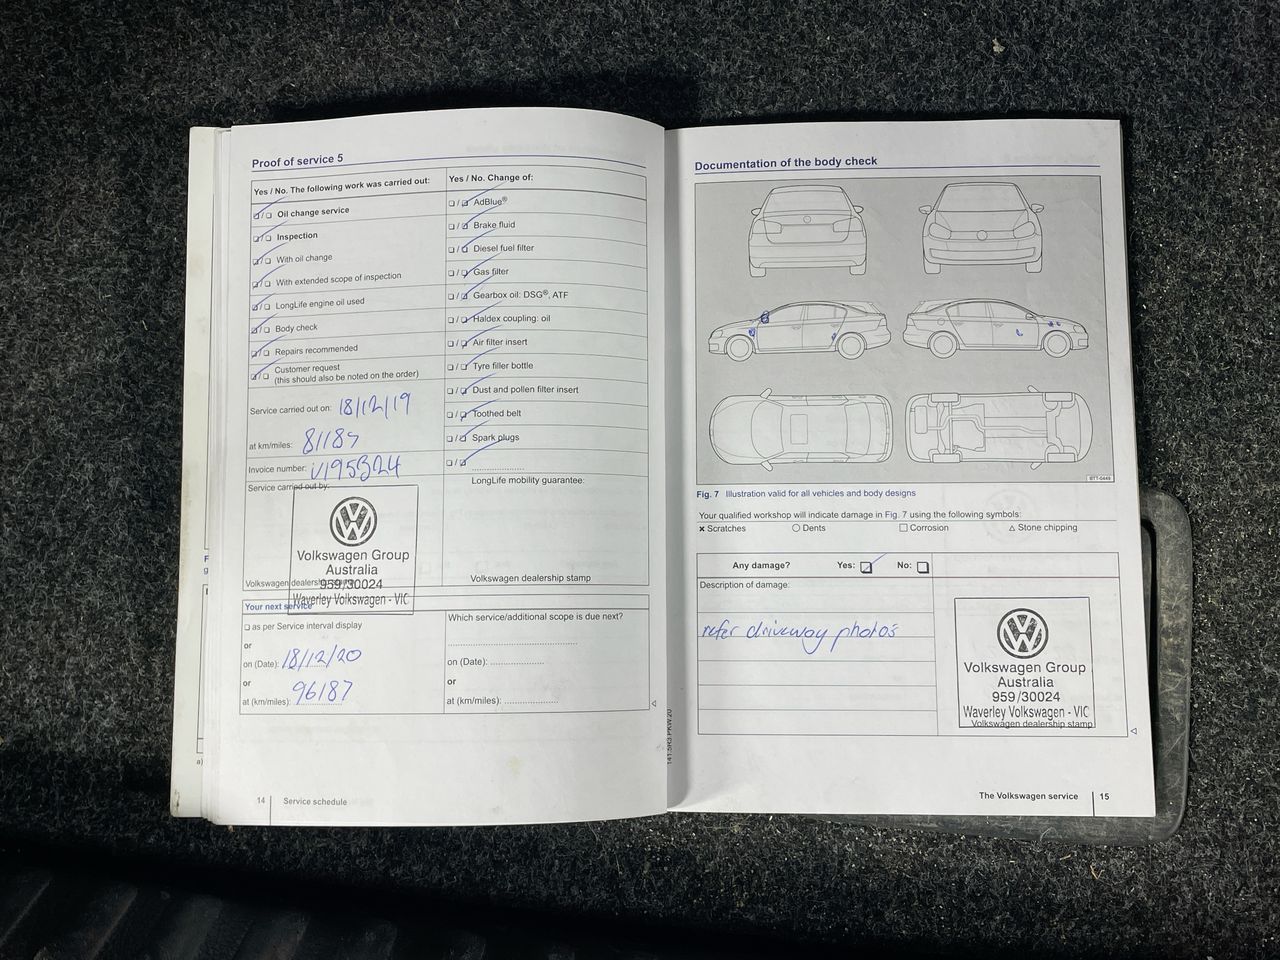 Proof of service 5
Yes / No. The following work was carried out:
Oil change service
Inspection
With oil change
With extended scope of inspection
LongLife engine oil used
Body check
Repairs recommended
Customer request
(this should also be noted on the order)
Service carried out on: 18/12/19
at km/miles: 81187
Invoice number:
Service carried out by:
Volkswagen Group
Australia
959/30024
Waverley Volkswagen - VIC
Volkswagen dealership
Yes / No. Change of:
AdBlue®
Brake fluid
Diesel fuel filter
Gas filter
Gearbox oil: DSG®, ATF
Haldex coupling: oil
Air filter insert
Tyre filler bottle
Dust and pollen filter insert
Toothed belt
Spark plugs
LongLife mobility guarantee:
Volkswagen dealership stamp
Your next service
as per Service interval display
or
on (Date): 18/12/20
or
at (km/miles): 96187
Which service/additional scope is due next?
on (Date):
or
at (km/miles):
14 Service schedule
141.5R3.PKW.20
Documentation of the body check
BTT-0449
Fig. 7 Illustration valid for all vehicles and body designs
Your qualified workshop will indicate damage in Fig. 7 using the following symbols:
× Scratches ○ Dents □ Corrosion △ Stone chipping
Any damage? Yes: No:
Description of damage:
refer driveway photos
Volkswagen Group
Australia
959/30024
Waverley Volkswagen - VIC
Volkswagen dealership stamp
The Volkswagen service 15